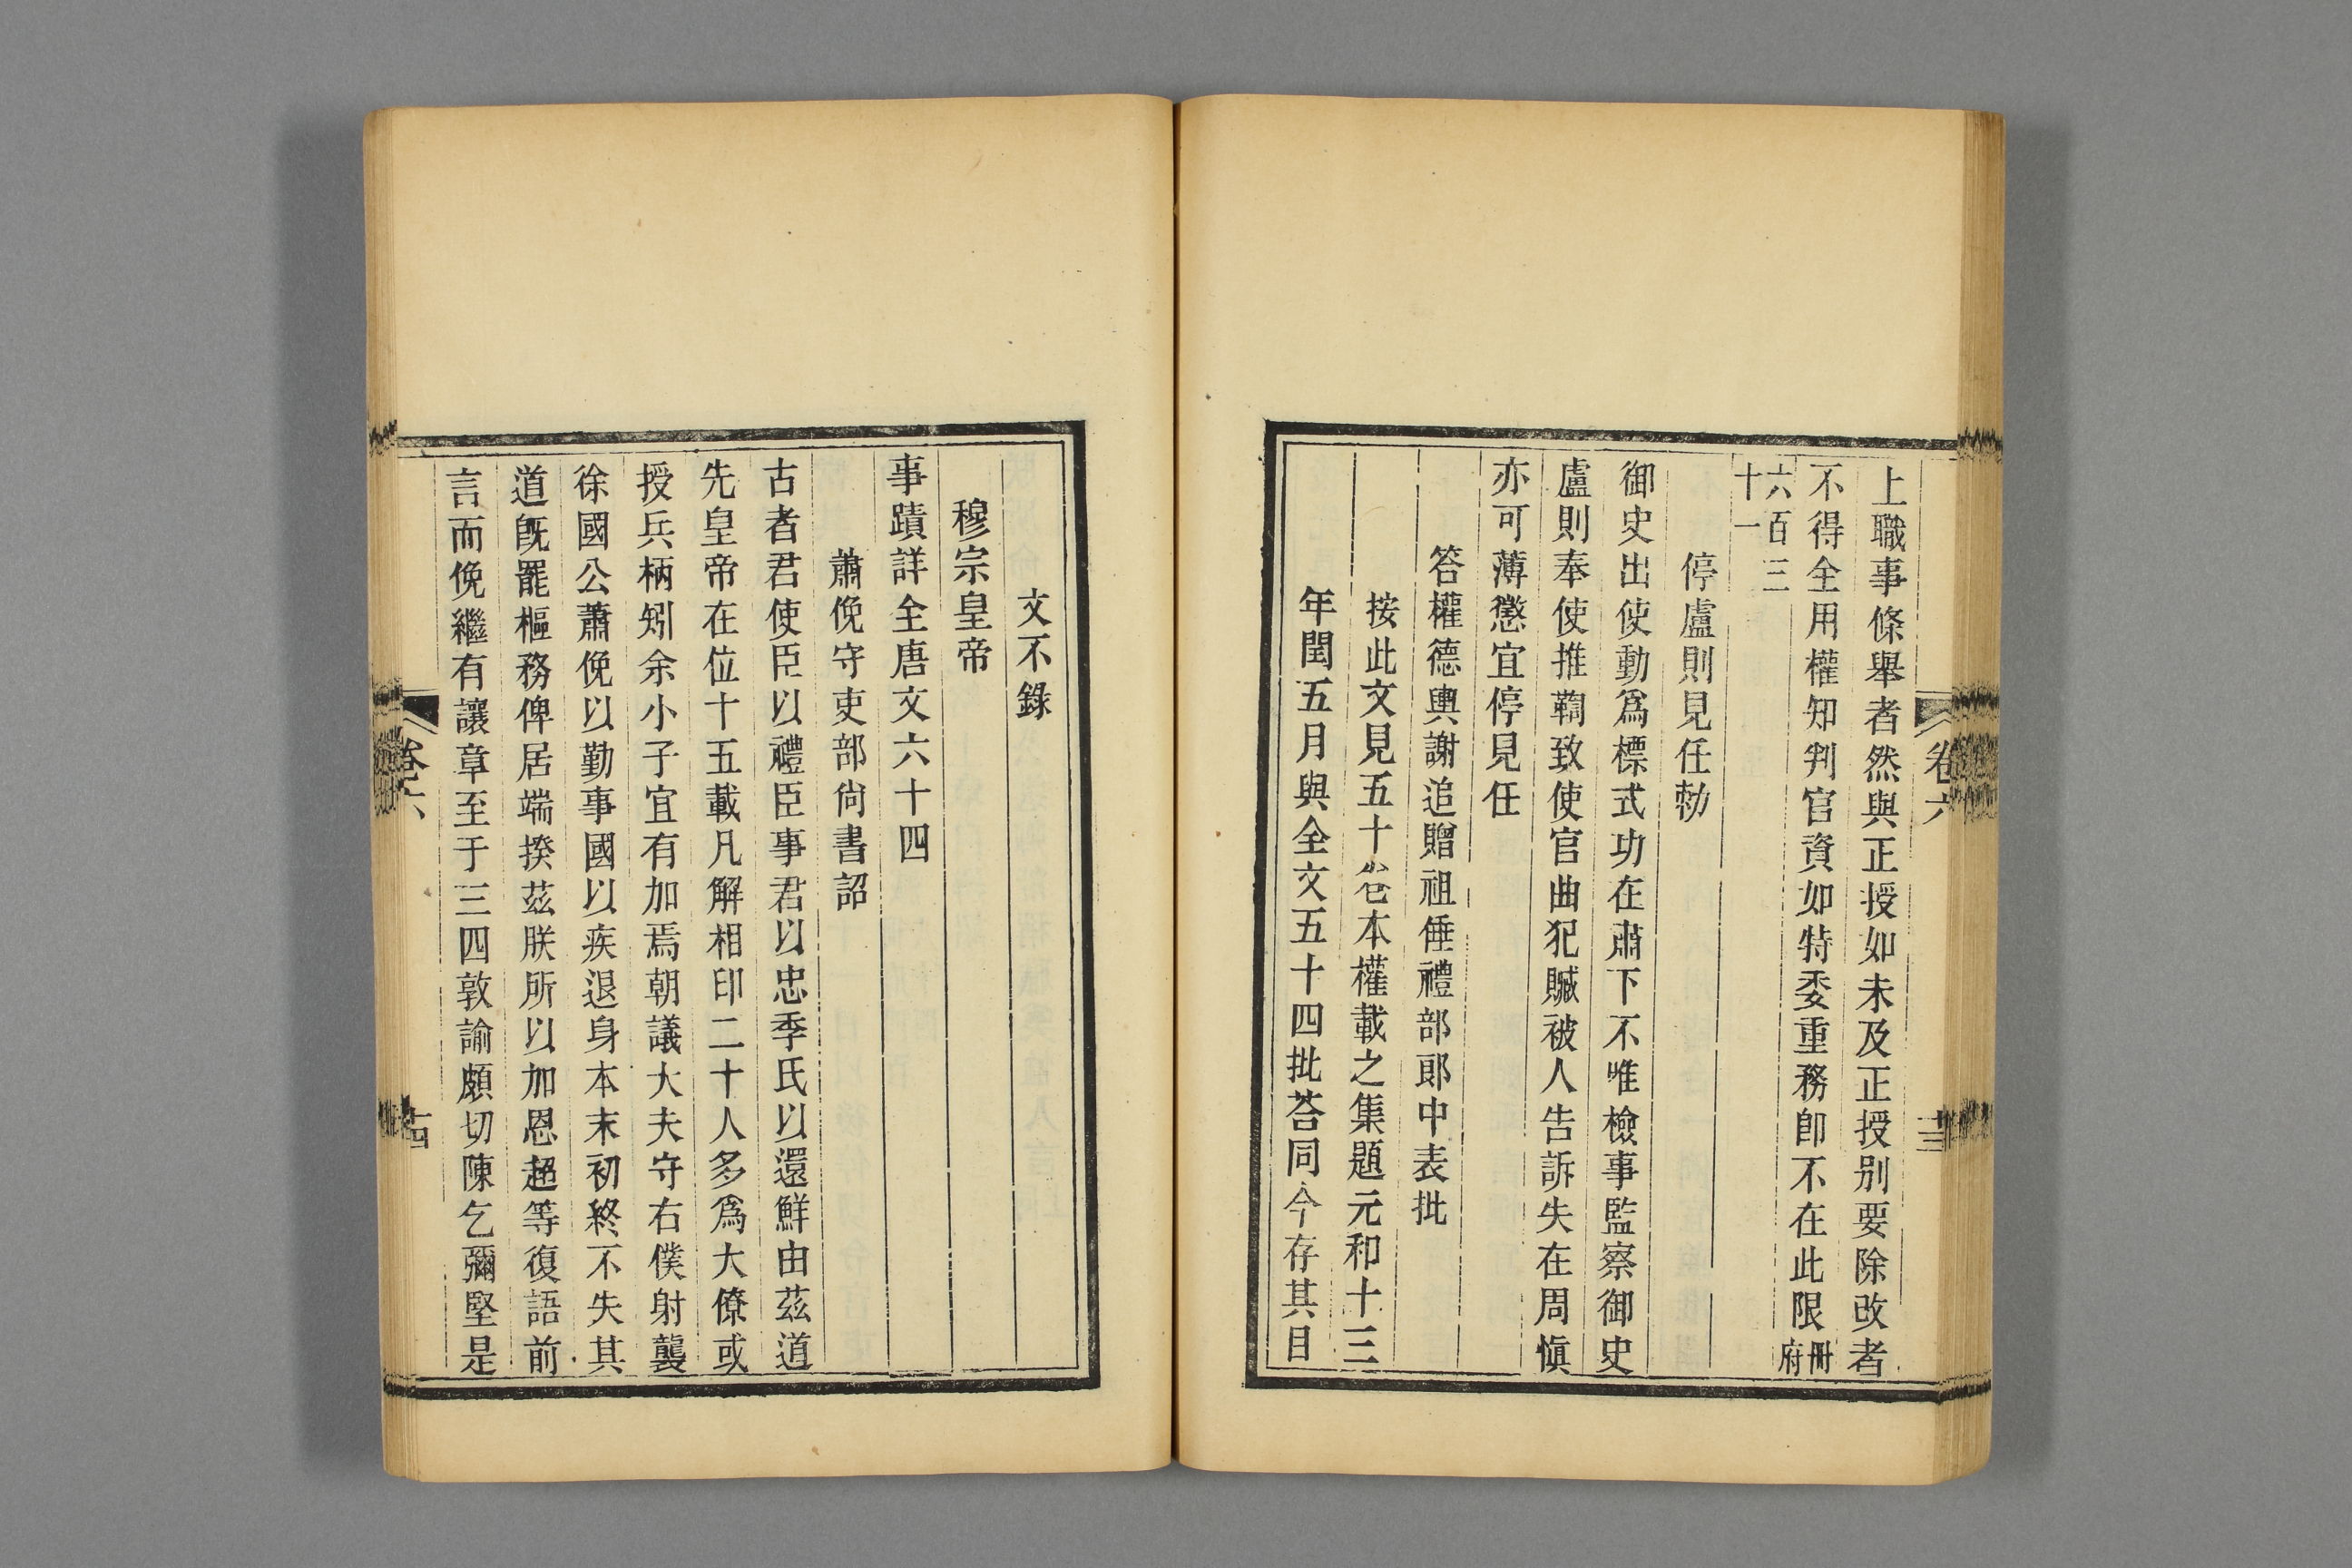 卷六
十三
上職事條舉者然與正授如未及正授别要除改者
不得全用權知判官資如特委重務卽不在此限冊府
六百三
十一
停盧則見任勅
御史出使動爲標式功在肅下不唯檢事監察御史
盧則奉使推鞫致使官曲犯贓被人告訴失在周愼
亦可薄懲宜停見任
答權德輿謝追贈祖倕禮部郎中表批
按此文見五十卷本權載之集題元和十三
年閏五月與全文五十四批荅同今存其目
文不錄
穆宗皇帝
事蹟詳全唐文六十四
蕭俛守吏部尙書詔
古者君使臣以禮臣事君以忠季氏以還鮮由茲道
先皇帝在位十五載凡解相印二十人多爲大僚或
授兵柄矧余小子宜有加焉朝議大夫守右僕射襲
徐國公蕭俛以勤事國以疾退身本末初終不失其
道旣罷樞務俾居端揆茲朕所以加恩超等復語前
言而俛繼有讓章至于三四敦諭頗切陳乞彌堅是
卷六
十四